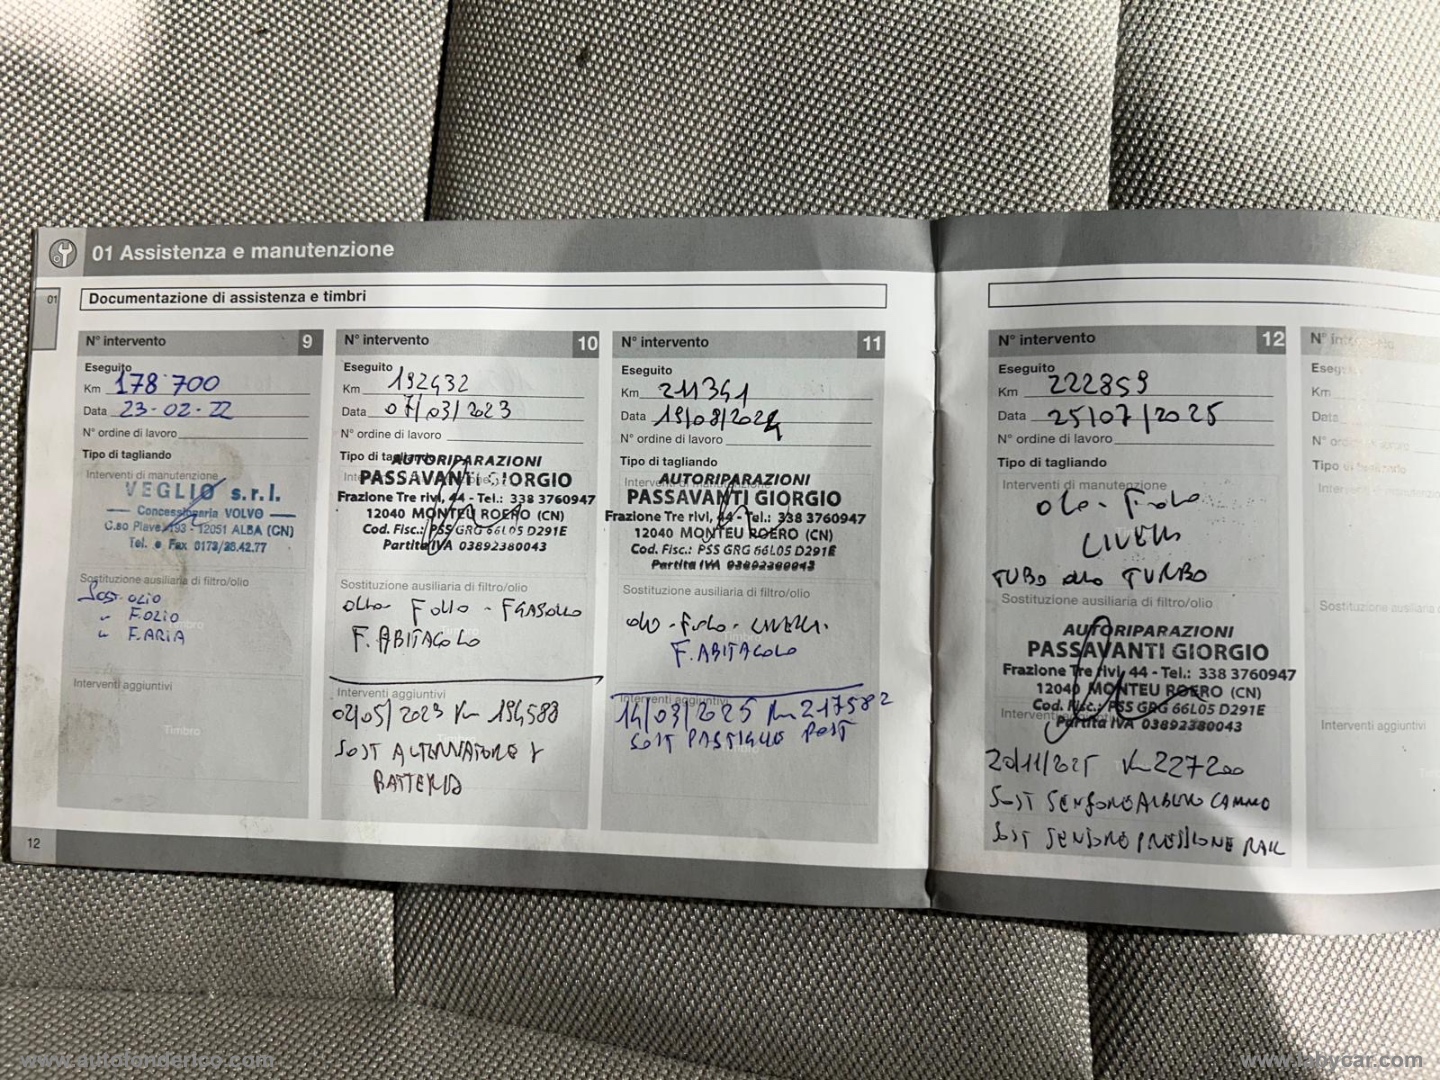 01 Assistenza e manutenzione
01
Documentazione di assistenza e timbri
N° intervento 9
Eseguito
Km 178 700
Data 23-02-22
N° ordine di lavoro
Tipo di tagliando
Interventi di manutenzione
VEGLIO s.r.l.
Concessionaria VOLVO
C.so Piave 193 - 12051 ALBA (CN)
Tel. e Fax 0173/28.42.77
Sostituzione ausiliaria di filtro/olio
Sost. olio
" F. olio
" F. ARIA
Interventi aggiuntivi
Timbro
12
N° intervento 10
Eseguito
Km 192432
Data 07/03/2023
N° ordine di lavoro
Tipo di tagliando
AUTORIPARAZIONI
PASSAVANTI GIORGIO
Frazione Tre rivi, 44 - Tel.: 338 3760947
12040 MONTEU ROERO (CN)
Cod. Fisc.: PSS GRG 66L05 D291E
Partita IVA 03892380043
Sostituzione ausiliaria di filtro/olio
olio - F olio - F GASOLIO
F. ABITACOLO
Interventi aggiuntivi
02/05/2023 Km 194588
SOST ALTERNATORE +
BATTERIA
N° intervento 11
Eseguito
Km 211341
Data 19/08/2024
N° ordine di lavoro
Tipo di tagliando
AUTORIPARAZIONI
PASSAVANTI GIORGIO
Frazione Tre rivi, 44 - Tel.: 338 3760947
12040 MONTEU ROERO (CN)
Cod. Fisc.: PSS GRG 66L05 D291E
Partita IVA 03892380043
Sostituzione ausiliaria di filtro/olio
olio - F. olio - LIVELLI.
F. ABITACOLO
Interventi aggiuntivi
14/03/2025 Km 217582
SOST PASTIGLIE POST
N° intervento 12
Eseguito
Km 222859
Data 25/07/2025
N° ordine di lavoro
Tipo di tagliando
Interventi di manutenzione
olio - F. olio
LIVELLI
TUBO olio TURBO
Sostituzione ausiliaria di filtro/olio
AUTORIPARAZIONI
PASSAVANTI GIORGIO
Frazione Tre rivi, 44 - Tel.: 338 3760947
12040 MONTEU ROERO (CN)
Cod. Fisc.: PSS GRG 66L05 D291E
Partita IVA 03892380043
Interventi aggiuntivi
20/11/2025 Km 227200
SOST SENSORE ALBERO CAMME
SOST SENSORE PRESSIONE RAIL
N° intervento
Eseguito
Km
Data
N° ordine di lavoro
Tipo di tagliando
Interventi di manutenzione
Sostituzione ausiliaria
Interventi aggiuntivi
www.autofonderico.com
www.labycar.com